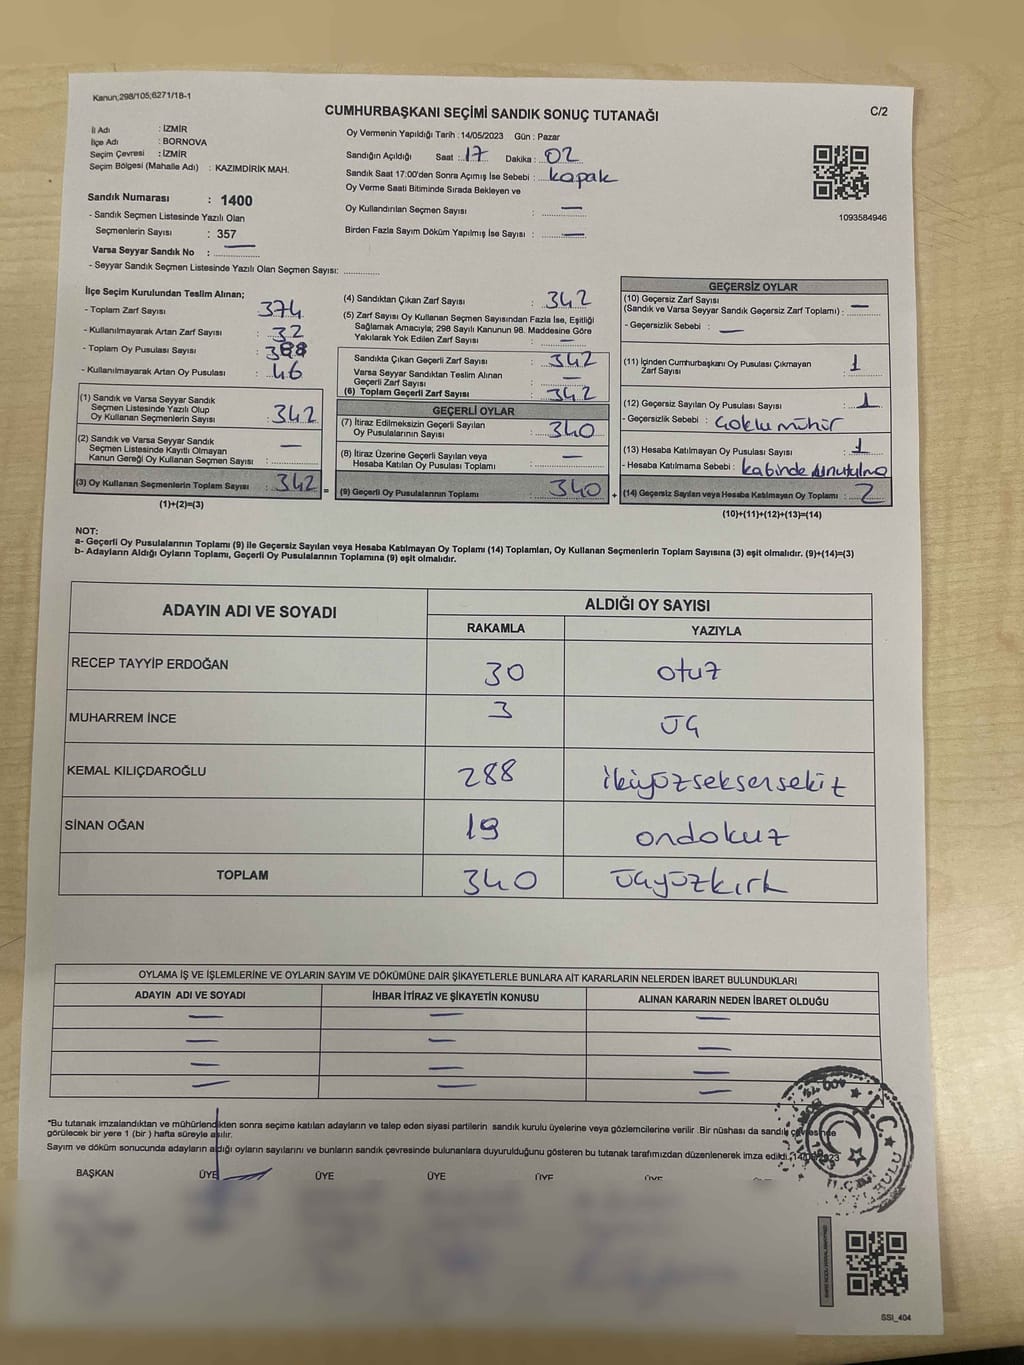 Kanun;298/105;6271/18-1
CUMHURBAŞKANI SEÇİMİ SANDIK SONUÇ TUTANAĞI
C/2
İl Adı : İZMİR
İlçe Adı : BORNOVA
Seçim Çevresi : İZMİR
Seçim Bölgesi (Mahalle Adı) : KAZIMDİRİK MAH.
Sandık Numarası : 1400
- Sandık Seçmen Listesinde Yazılı Olan
Seçmenlerin Sayısı : 357
Varsa Seyyar Sandık No : —
- Seyyar Sandık Seçmen Listesinde Yazılı Olan Seçmen Sayısı: ............
Oy Vermenin Yapıldığı Tarih : 14/05/2023 Gün : Pazar
Sandığın Açıldığı Saat : 17 Dakika : 02
Sandık Saat 17:00'den Sonra Açımış İse Sebebi : kapak
Oy Verme Saati Bitiminde Sırada Bekleyen ve
Oy Kullandırılan Seçmen Sayısı : —
Birden Fazla Sayım Döküm Yapılmış İse Sayısı : —
1093584946
İlçe Seçim Kurulundan Teslim Alınan;
- Toplam Zarf Sayısı 374
- Kullanılmayarak Artan Zarf Sayısı : 32
- Toplam Oy Pusulası Sayısı : 388
- Kullanılmayarak Artan Oy Pusulası : 46
(1) Sandık ve Varsa Seyyar Sandık
Seçmen Listesinde Yazılı Olup
Oy Kullanan Seçmenlerin Sayısı : 342
(2) Sandık ve Varsa Seyyar Sandık
Seçmen Listesinde Kayıtlı Olmayan
Kanun Gereği Oy Kullanan Seçmen Sayısı : —
(3) Oy Kullanan Seçmenlerin Toplam Sayısı : 342 =
(1)+(2)=(3)
(4) Sandıktan Çıkan Zarf Sayısı : 342
(5) Zarf Sayısı Oy Kullanan Seçmen Sayısından Fazla İse, Eşitliği
Sağlamak Amacıyla; 298 Sayılı Kanunun 98. Maddesine Göre
Yakılarak Yok Edilen Zarf Sayısı : —
Sandıkta Çıkan Geçerli Zarf Sayısı : 342
Varsa Seyyar Sandıktan Teslim Alınan
Geçerli Zarf Sayısı : —
(6) Toplam Geçerli Zarf Sayısı : 342
GEÇERLİ OYLAR
(7) İtiraz Edilmeksizin Geçerli Sayılan
Oy Pusulalarının Sayısı : 340
(8) İtiraz Üzerine Geçerli Sayılan veya
Hesaba Katılan Oy Pusulası Toplamı : —
(9) Geçerli Oy Pusulalarının Toplamı : 340 +
GEÇERSİZ OYLAR
(10) Geçersiz Zarf Sayısı
(Sandık ve Varsa Seyyar Sandık Geçersiz Zarf Toplamı) : —
- Geçersizlik Sebebi : —
(11) İçinden Cumhurbaşkanı Oy Pusulası Çıkmayan
Zarf Sayısı : 1
(12) Geçersiz Sayılan Oy Pusulası Sayısı : 1
- Geçersizlik Sebebi : Çoklu mühür
(13) Hesaba Katılmayan Oy Pusulası Sayısı : 1
- Hesaba Katılmama Sebebi : kabinde unutulma
(14) Geçersiz Sayılan veya Hesaba Katılmayan Oy Toplamı : 2
(10)+(11)+(12)+(13)=(14)
NOT:
a- Geçerli Oy Pusulalarının Toplamı (9) ile Geçersiz Sayılan veya Hesaba Katılmayan Oy Toplamı (14) Toplamları, Oy Kullanan Seçmenlerin Toplam Sayısına (3) eşit olmalıdır. (9)+(14)=(3)
b- Adayların Aldığı Oyların Toplamı, Geçerli Oy Pusulalarının Toplamına (9) eşit olmalıdır.
ADAYIN ADI VE SOYADI ALDIĞI OY SAYISI
RAKAMLA YAZIYLA
RECEP TAYYİP ERDOĞAN 30 otuz
MUHARREM İNCE 3 üç
KEMAL KILIÇDAROĞLU 288 ikiyüzseksensekiz
SİNAN OĞAN 19 ondokuz
TOPLAM 340 üçyüzkırk
OYLAMA İŞ VE İŞLEMLERİNE VE OYLARIN SAYIM VE DÖKÜMÜNE DAİR ŞİKAYETLERLE BUNLARA AİT KARARLARIN NELERDEN İBARET BULUNDUKLARI
ADAYIN ADI VE SOYADI İHBAR İTİRAZ VE ŞİKAYETİN KONUSU ALINAN KARARIN NEDEN İBARET OLDUĞU
— — —
— — —
— — —
— — —
*Bu tutanak imzalandıktan ve mühürlendikten sonra seçime katılan adayların ve talep eden siyasi partilerin sandık kurulu üyelerine veya gözlemcilerine verilir .Bir nüshası da sandık çevresinde
görülecek bir yere 1 (bir ) hafta süreyle asılır.
Sayım ve döküm sonucunda adayların aldığı oyların sayılarını ve bunların sandık çevresinde bulunanlara duyurulduğunu gösteren bu tutanak tarafımızdan düzenlenerek imza edildi. 14/05/2023
BAŞKAN ÜYE ÜYE ÜYE ÜYE ÜYE
T.C.
SSİ_404